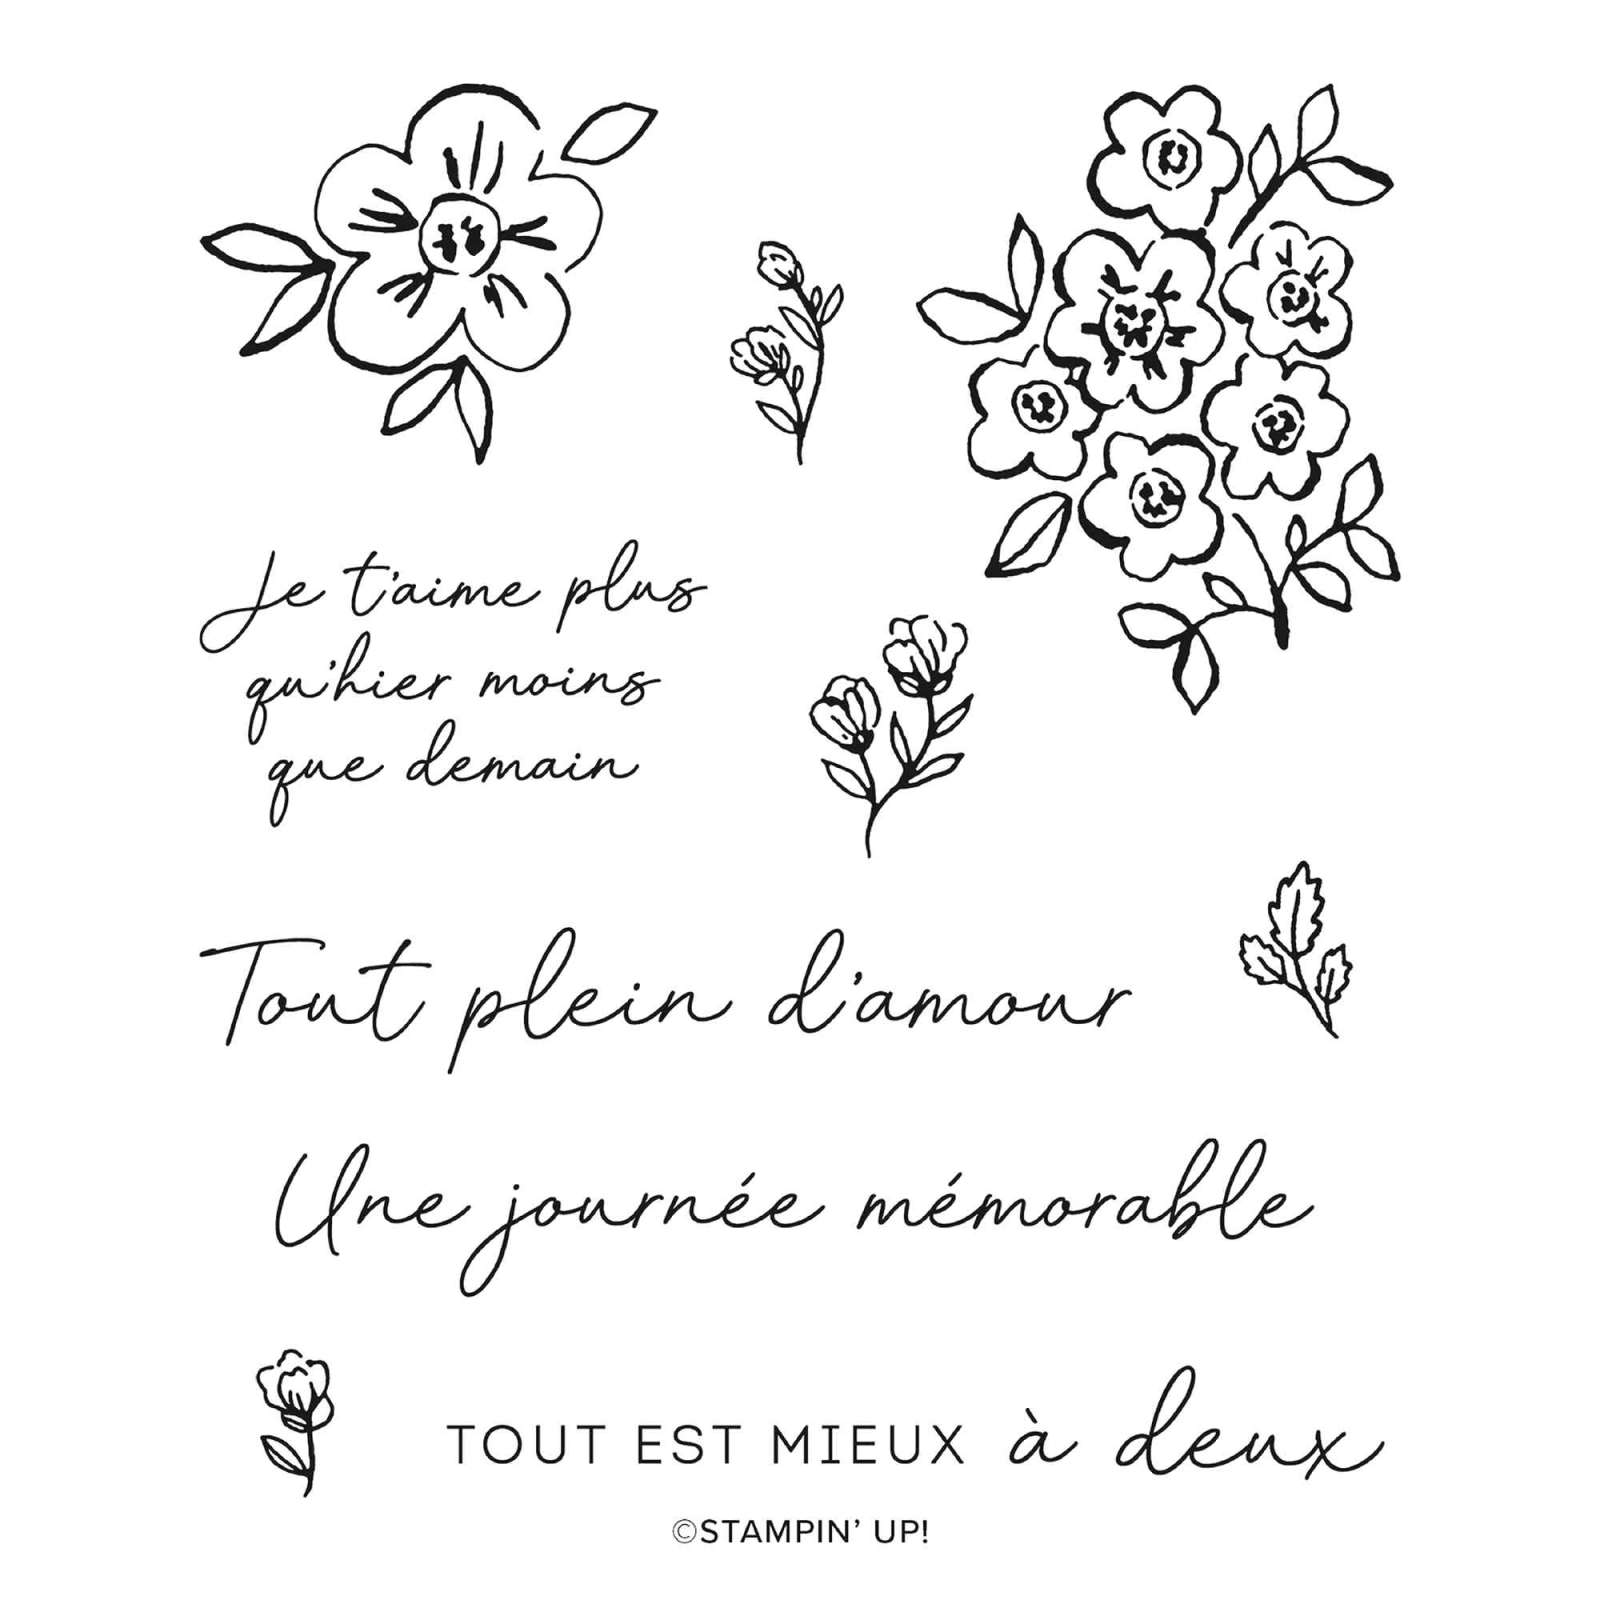 Je t'aime plus
qu'hier moins
que demain
Tout plein d'amour
Une journée mémorable
TOUT EST MIEUX à deux
©STAMPIN' UP!